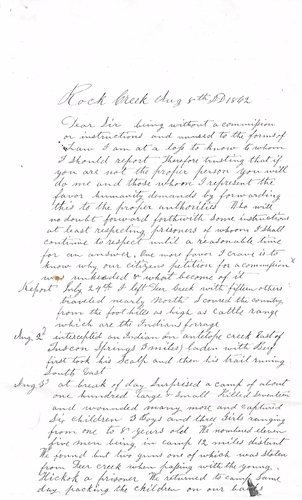 Rock Creek Aug 8th AD 1862
Dear Sir being without a commission
or instructions and unused to the forms of
Law I am at a loss to know to whom
I should report Therefore trusting that if
you are not the proper person you will
do me and those whom I represent the
favor humanity demands by forwarding
this to the proper authorities Who will
no doubt forward forthwith some instructions
at least respecting prisoners of whom I shall
continue to respect until a reasonable time
for an answer. One more favor I crave is to
know why our citizens petition for a commission
was unheeded & what become of it
Report July 29th I left Deer Creek with fifteen others
traveled nearly North I scoured the country
from the foot hills as high as cattle range
which are the Indians forrage
Aug. 2d intercepted an Indian on antelope creek East of
Tuscon Springs 8 miles laden with beef
first took his Scalp and then his trail runing
South East
Aug 3d at break of day Surprised a camp of about
one hundred large & small Killed Seventeen
and wounded many more and captured
Six children 3 Boys and three Girls ranging
from one to 8 years old The
five men being in camp 12 miles distant
We found but two guns one of which was stolen
from Deer creek when passing with the young
Hickok a prisoner We returned to camp Same
day, packing the children on our backs